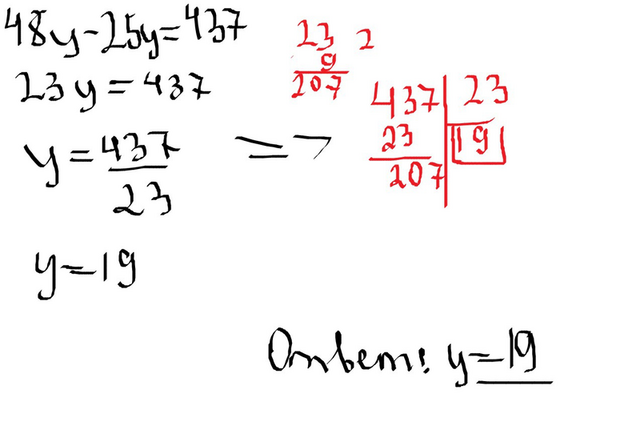 48y-25y=437
23y=437
y=437/23 =>
y=19
23 2
9
207
437 23
23 19
207
Ответ: y=19